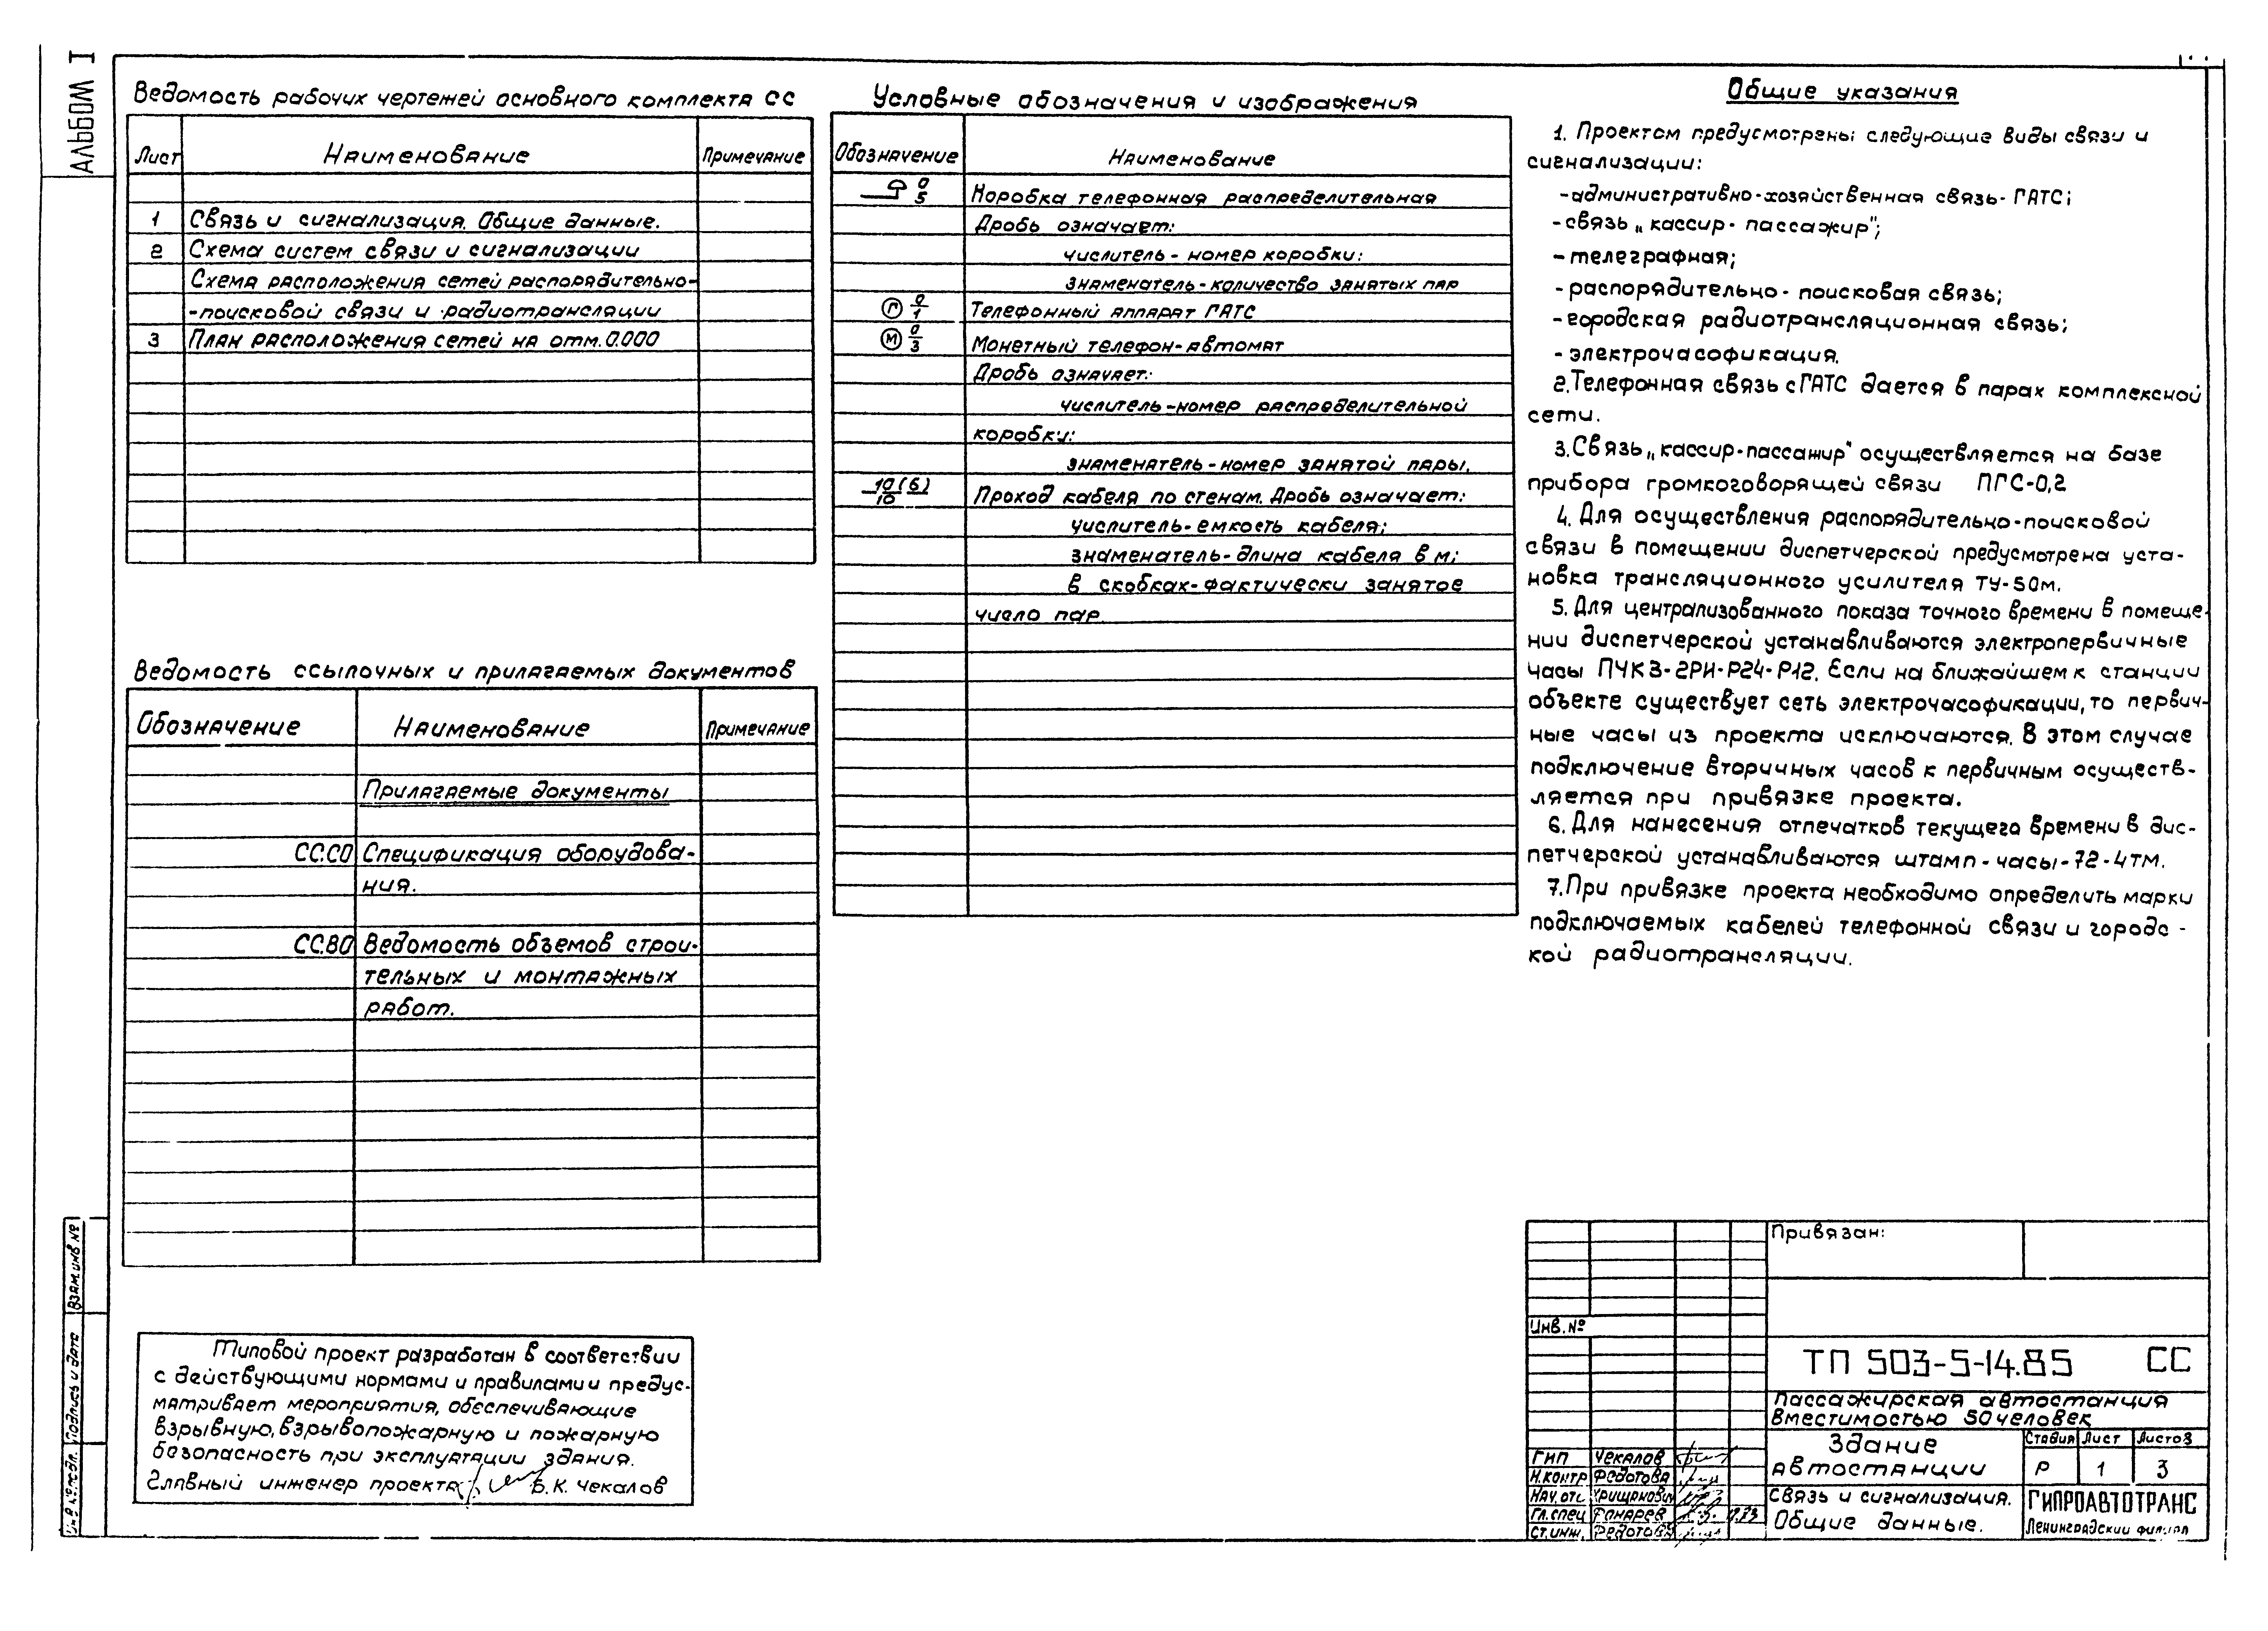 Альбом I
Ведомость рабочих чертежей основного комплекта СС
Лист Наименование Примечание
1 Связь и сигнализация. Общие данные.
2 Схема систем связи и сигнализации
Схема расположения сетей распорядительно-
-поисковой связи и радиотрансляции
3 План расположения сетей на отм. 0.000
Ведомость ссылочных и прилагаемых документов
Обозначение Наименование Примечание
Прилагаемые документы
СС.СО Спецификация оборудова-
ния.
СС.ВО Ведомость объемов строи-
тельных и монтажных
работ.
Типовой проект разработан в соответствии
с действующими нормами и правилами и предус-
матривает мероприятия, обеспечивающие
взрывную, взрывопожарную и пожарную
безопасность при эксплуатации здания.
Главный инженер проекта Б.К. Чекалов
Условные обозначения и изображения
Обозначение Наименование
0/5 Коробка телефонная распределительная
Дробь означает:
числитель - номер коробки:
знаменатель - количество занятых пар
Г 0/1 Телефонный аппарат ГАТС
М 0/3 Монетный телефон-автомат
Дробь означает:
числитель - номер распределительной
коробки:
знаменатель - номер занятой пары.
10(6)/10 Проход кабеля по стенам. Дробь означает:
числитель - емкость кабеля;
знаменатель - длина кабеля в м;
в скобках - фактически занятое
число пар
Общие указания
1. Проектом предусмотрены следующие виды связи и
сигнализации:
- административно-хозяйственная связь - ГАТС;
- связь „кассир - пассажир";
- телеграфная;
- распорядительно - поисковая связь;
- городская радиотрансляционная связь;
- электрочасофикация.
2. Телефонная связь с ГАТС дается в парах комплексной
сети.
3. Связь „кассир-пассажир" осуществляется на базе
прибора громкоговорящей связи ПГС-0,2
4. Для осуществления распорядительно-поисковой
связи в помещении диспетчерской предусмотрена уста-
новка трансляционного усилителя ТУ-50м.
5. Для централизованного показа точного времени в помеще-
нии диспетчерской устанавливаются электропервичные
часы ПЧК3-2РИ-Р24-Р12. Если на ближайшем к станции
объекте существует сеть электрочасофикации, то первич-
ные часы из проекта исключаются. В этом случае
подключение вторичных часов к первичным осуществ-
ляется при привязке проекта.
6. Для нанесения отпечатков текущего времени в дис-
петчерской устанавливаются штамп - часы - 72 - 4ТМ.
7. При привязке проекта необходимо определить марки
подключаемых кабелей телефонной связи и городс -
кой радиотрансляции.
Привязан:
Инв. №
ТП 503-5-14.85 СС
Пассажирская автостанция
вместимостью 50 человек
Здание
автостанции
Стадия Лист Листов
Р 1 3
Связь и сигнализация.
Общие данные.
ГИПРОАВТОТРАНС
Ленинградский филиал
ГИП Чекалов
Н.контр Федотова
Нач. отд.
Гл.спец
Ст.инж. Федотова
Взам. инв №
Подпись и дата
Инв. № подл.